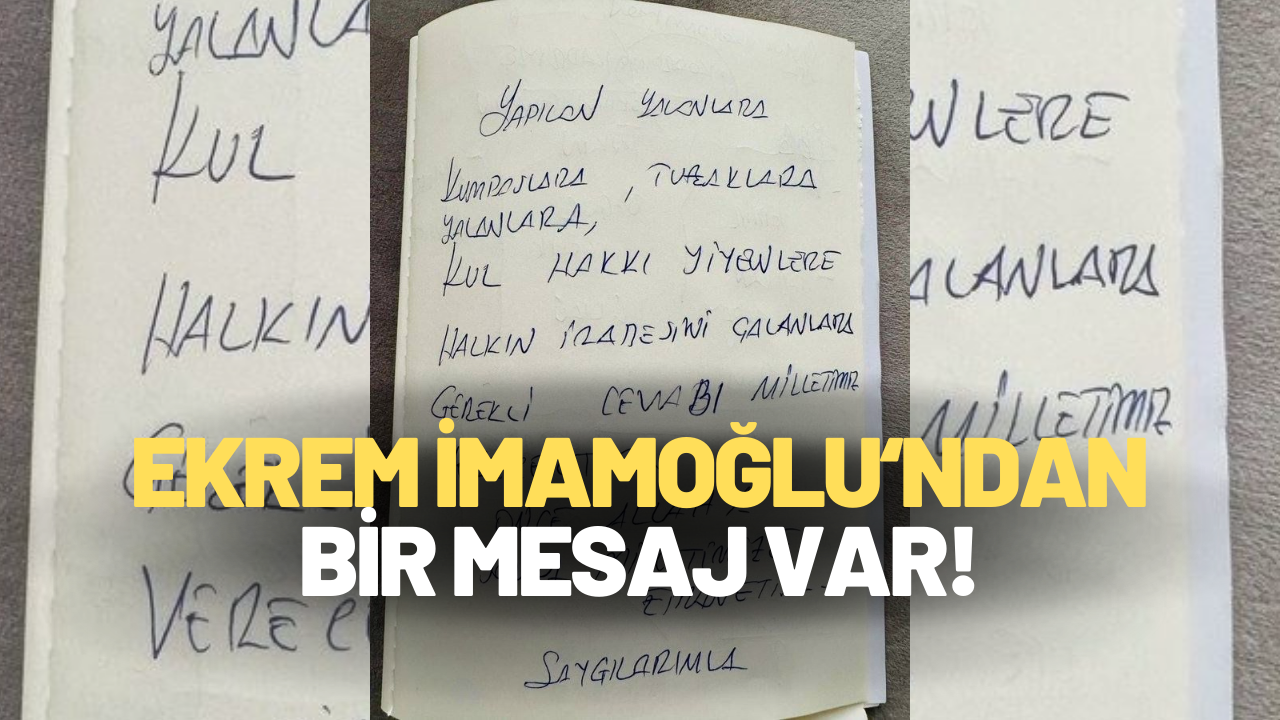 YALANLA
KUL
HALKIN
VERE
YAPILAN YALANLARA
KUMPASLARA , TUZAKLARA
YALANLARA,
KUL HAKKI YİYENLERE
HALKIN İRADESİNİ ÇALANLARA
GEREKLİ CEVABI MİLLETİMİZ
SAYGILARIMLA
NLERE
ALANLARA
MİLLETİMİZ
EKREM İMAMOĞLU‘NDAN
BİR MESAJ VAR!